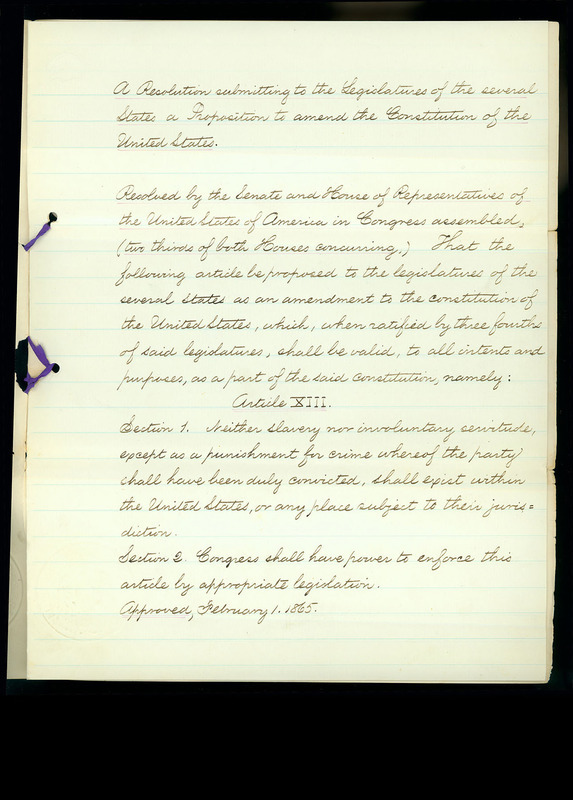 A Resolution submitting to the Legislatures of the several
States a Proposition to amend the Constitution of the
United States.
Resolved by the Senate and House of Representatives of
the United States of America in Congress assembled,
(two thirds of both Houses concurring,) That the
following article be proposed to the legislatures of the
several States as an amendment to the constitution of
the United States, which, when ratified by three fourths
of said legislatures, shall be valid, to all intents and
purposes, as a part of the said constitution, namely:
Article XIII.
Section 1. Neither slavery nor involuntary servitude,
except as a punishment for crime whereof the party
shall have been duly convicted, shall exist within
the United States, or any place subject to their juris=
diction.
Section 2. Congress shall have power to enforce this
article by appropriate legislation.
Approved, February 1. 1865.